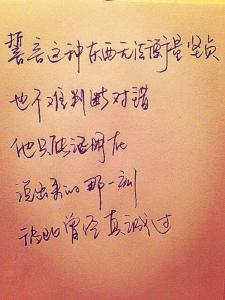 誓言这种东西无法衡量坚贞
也不难判断对错
他只能证明在
说出来的那一刻
彼此曾经真诚过